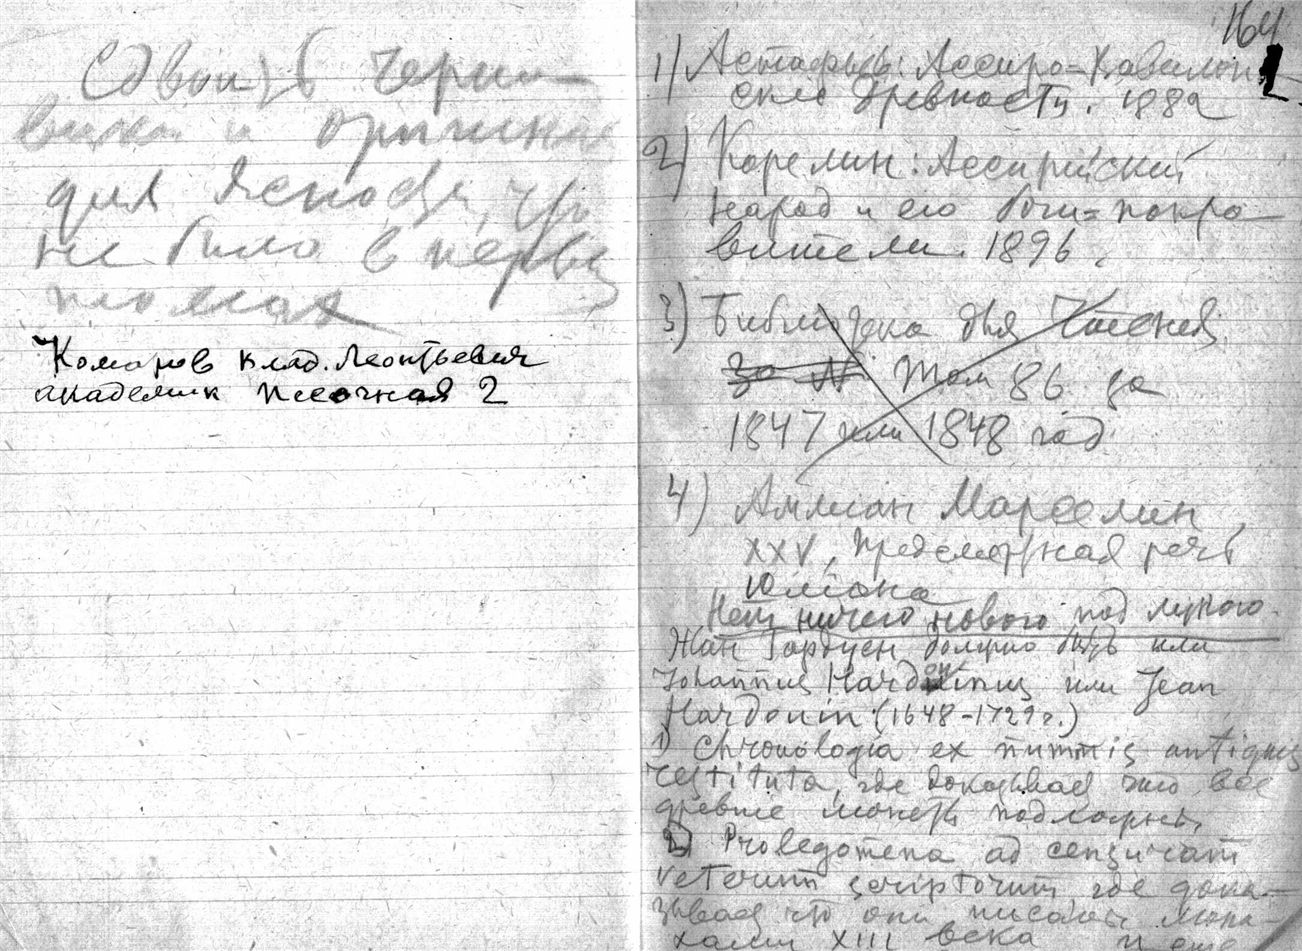 Сдвоить черни-
вики и оригинал
для
не было в первы
томах
Комаров Влад. Леонтьевич
академик Песочная 2
164
1) Астафьев: Ассиро=Вавилон-
ские древности. 1882
2) Корелин: Ассирийский
народ и его боги=покро-
вители. 1896.
3) Библиотека для Чтения
за № Том 86 за
1847 или 1848 год
4) Аммиан Марселин,
XXV, предсмертная речь
Юлиана
Нет ничего нового под луною.
Жан Гардуен должно быть или
Johannus Harduinus или Jean
Hardouin (1648-1729 г.)
1) Chronologia ex nummis antiquis
restituta, где доказывает что все
древние монеты подложны.
2) Prolegomena ad censuram
veterum scriptorum где дока-
зывает что они писаны мона-
хами XIII века